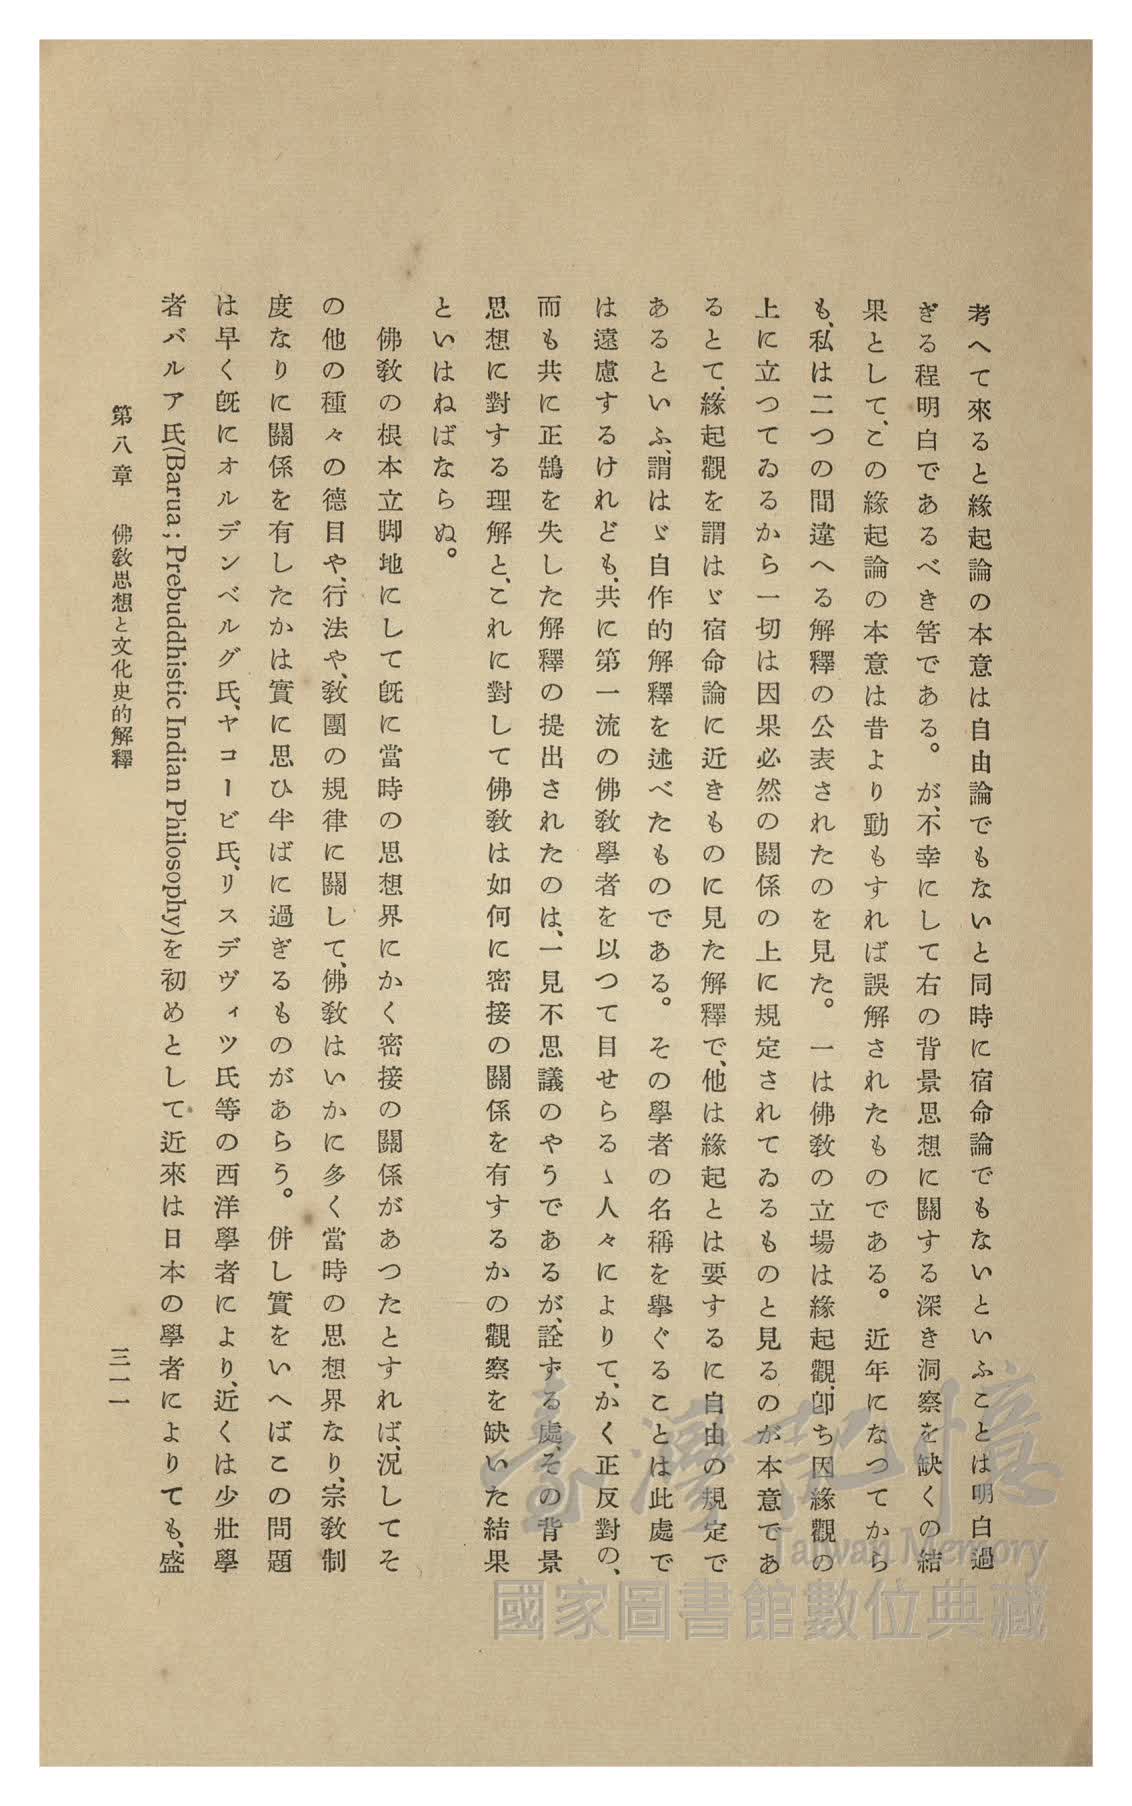 考へて來ると緣起論の本意は自由論でもないと同時に宿命論でもないといふことは明白過
ぎる程明白であるべき筈である。が、不幸にして右の背景思想に關する深き洞察を缺くの結
果として、この緣起論の本意は昔より動もすれば誤解されたものである。近年になつてから
も、私は二つの間違へる解釋の公表されたのを見た。一は佛敎の立場は緣起觀、卽ち因緣觀の
上に立つてゐるから一切は因果必然の關係の上に規定されてゐるものと見るのが本意であ
るとて、緣起觀を謂はゞ宿命論に近きものに見た解釋で、他は緣起とは要するに自由の規定で
あるといふ、謂はゞ自作的解釋を述べたものである。その學者の名稱を擧ぐることは此處で
は遠慮するけれども、共に第一流の佛敎學者を以つて目せらるゝ人々によりて、かく正反對の、
而も共に正鵠を失した解釋の提出されたのは、一見不思議のやうであるが、詮ずる處、その背景
思想に對する理解と、これに對して佛敎は如何に密接の關係を有するかの觀察を缺いた結果
といはねばならぬ。
佛敎の根本立脚地にして旣に當時の思想界にかく密接の關係があつたとすれば、況してそ
の他の種々の德目や、行法や、敎團の規律に關して、佛敎はいかに多く當時の思想界なり、宗敎制
度なりに關係を有したかは實に思ひ半ばに過ぎるものがあらう。併し實をいへばこの問題
は早く旣にオルデンベルグ氏、ヤコービ氏、リスデヴィツ氏等の西洋學者により、近くは少壯學
者バルア氏(Barua; Prebuddhistic Indian Philosophy)を初めとして近來は日本の學者によりても、盛
第八章 佛敎思想と文化史的解釋 三一一
臺灣記憶
Taiwan Memory
國家圖書館數位典藏